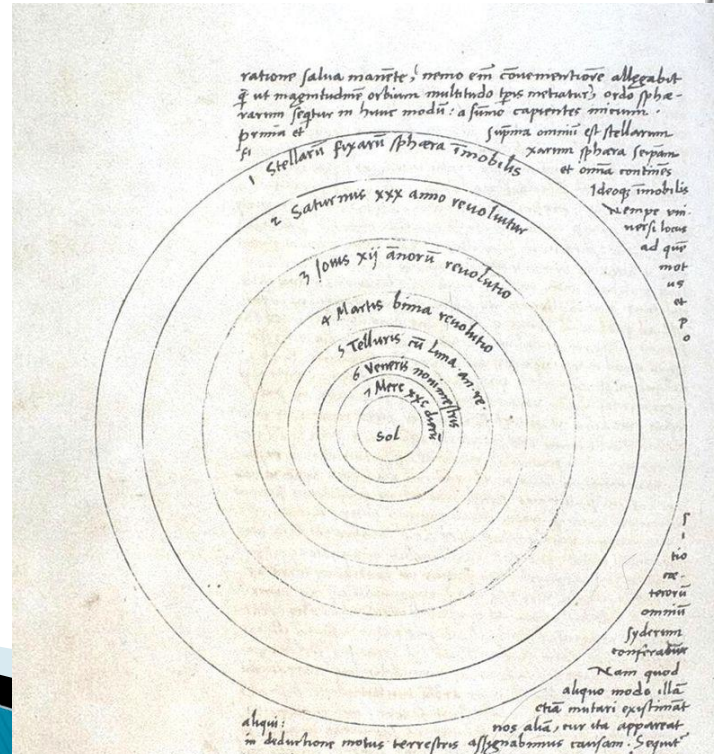 ratione salva manēte, nemo em̄ cōvenientiorē allegabit
q̄ ut magnitudinē orbium multitudo tp̄is metiatur, ordo sphæ-
rarum seqtur in hunc modū: a sūmo capientes inicium.
prima et suprēma omniū est stellarum
fi xarum sphæra seipsam
et omnia continēs
Ideoqȝ īmobilis
Nempe uni-
versi locus
ad quē
mot
us
et
p
o
1 Stellarū fixarū sphæra īmobilis
2 Saturnus xxx anno revolvitur
3 Jovis xij ānorū revolutio
4 Martis bima revolutio
5 Telluris cū Luna an. re.
6 Veneris nonimestris
7 Merc xxc dierū
Sol
s
i
tio
cæ-
terorū
omniū
syderum
conferatur
Nam quod
aliquo modo illā
etiā mutari existimāt
aliqui: nos aliā, cur ita appareat
in deductione motus terrestris assignabimus causam. Sequit᷑